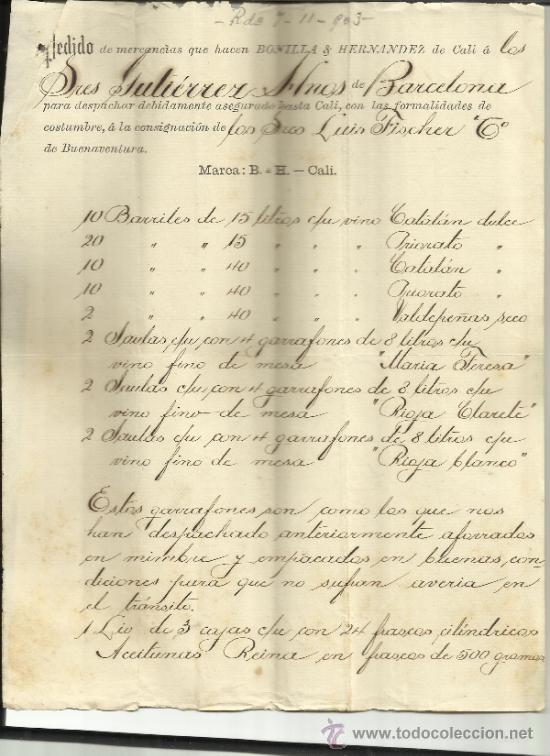 - Rdo 7-11-903-
Pedido de mercancías que hacen BONILLA & HERNANDEZ de Cali á los
Sres Gutiérrez Hnos de Barcelona
para despachar debidamente asegurado hasta Cali, con las formalidades de
costumbre, á la consignación de los Sres Luis Fischer & Co
de Buenaventura.
Marca: B. & H. — Cali.
10 Barriles de 15 litros c/u vino Catalán dulce
20 " " 15 " " " Priorato "
10 " " 40 " " " Catalán "
10 " " 40 " " " Priorato "
2 " " 40 " " " Valdepeñas seco
2 Jaulas c/u con 4 garrafones de 8 litros c/u
vino fino de mesa "Maria Teresa"
2 Jaulas c/u con 4 garrafones de 8 litros c/u
vino fino de mesa "Rioja Clarete"
2 Jaulas c/u con 4 garrafones de 8 litros c/u
vino fino de mesa "Rioja blanco"
Estos garrafones son como los que nos
han despachado anteriormente aforrados
en mimbre y empacados en buenas con-
diciones para que no sufran averia en
el tránsito.
1 Lio de 3 cajas c/u con 24 frascos cilíndricos
Aceitunas Reina en frascos de 500 gramos
todocoleccion
www.todocoleccion.net